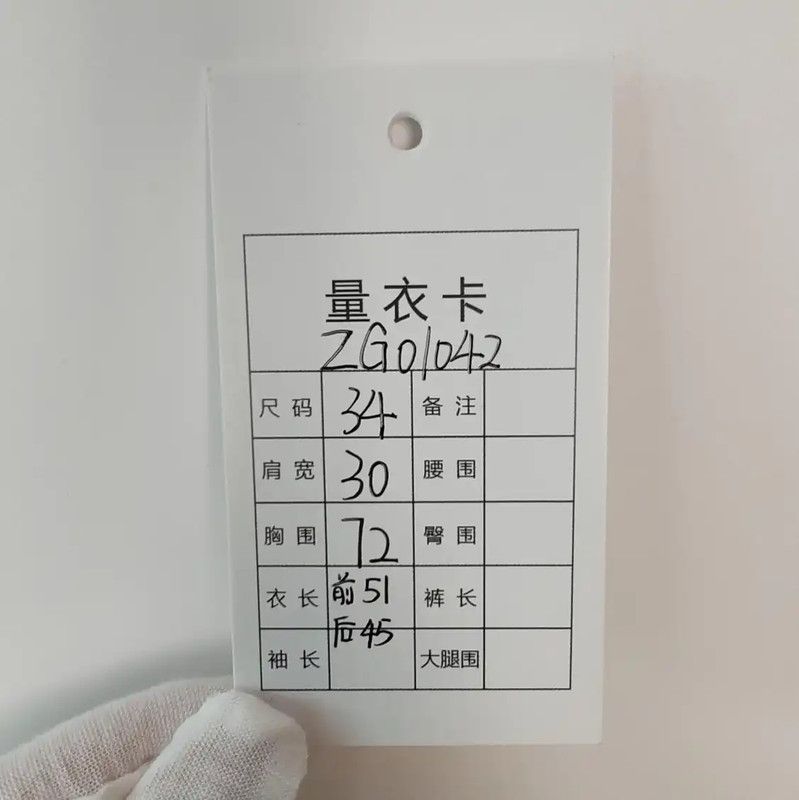 量衣卡
ZG01042
尺码 34 备注
肩宽 30 腰围
胸围 72 臀围
衣长 前51 裤长
后45
袖长 大腿围